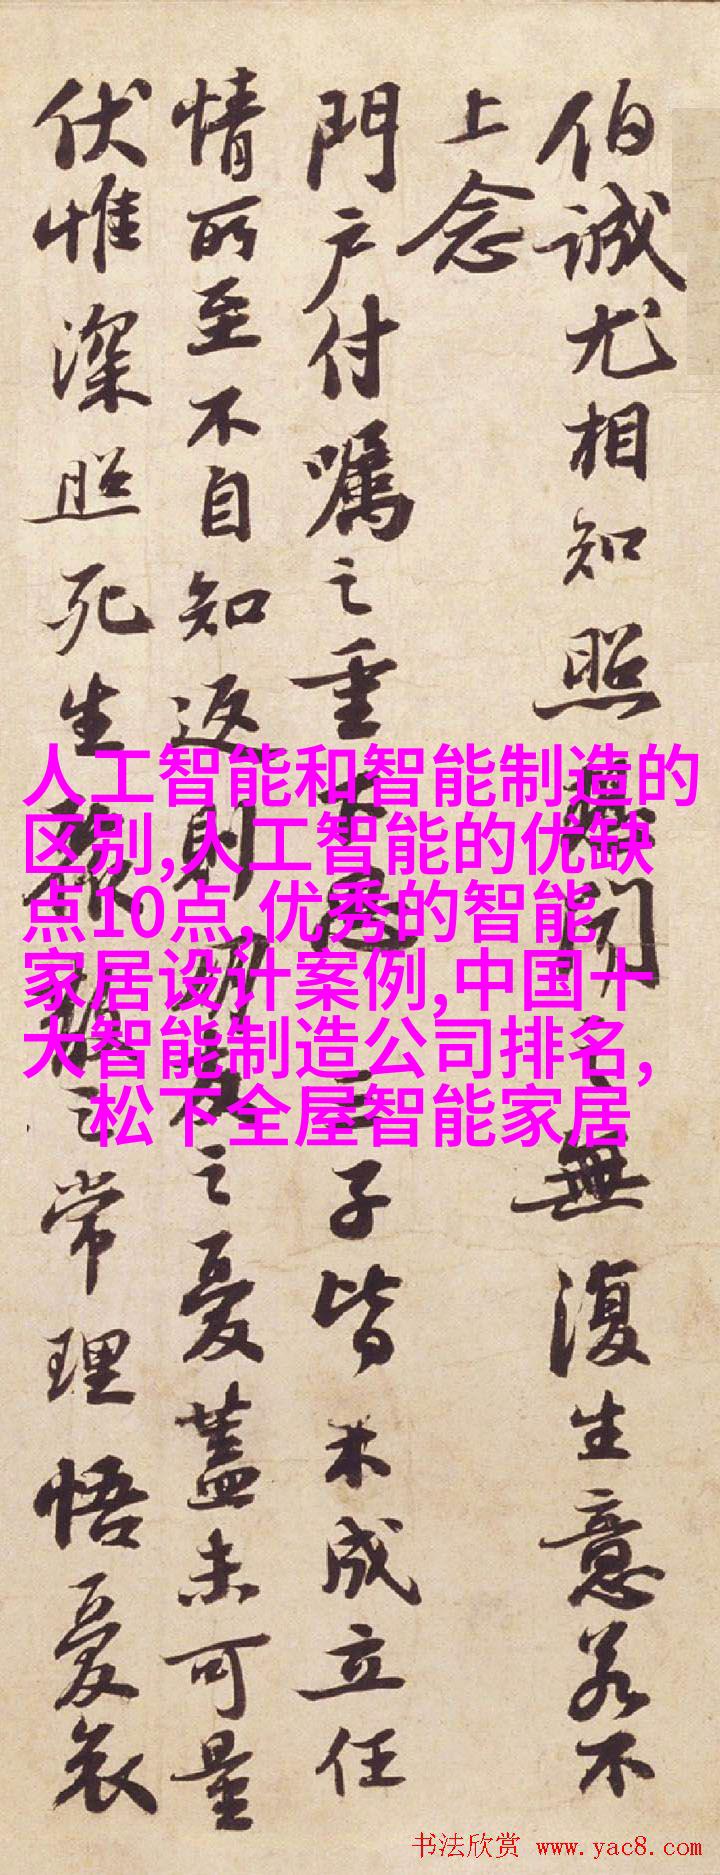 伯誠尤相知照想聞之無復生意若不
上念
門户付囑之重下思三子皆未成立任
情所至不自知返則朋友之憂蓋未可量
伏惟深照死生聚散之常理悟憂哀
人工智能和智能制造的
区别,人工智能的优缺
点10点,优秀的智能
家居设计案例,中国十
大智能制造公司排名,
松下全屋智能家居
书法欣赏 www.yac8.com